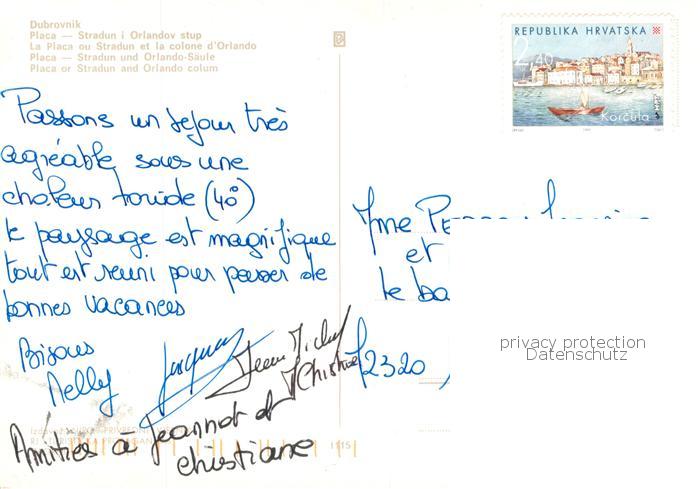 Dubrovnik
Placa — Stradun i Orlandov stup
La Placa ou Stradun et la colone d'Orlando
Placa — Stradun und Orlando-Säule
Placa or Stradun and Orlando colum
REPUBLIKA HRVATSKA
2,40
Korčula
Passons un séjour très
agréable sous une
chaleur torride (40°)
le paysage est magnifique
tout est réuni pour passer de
bonnes vacances
Bisous
Nelly
Jacques
Jean Michel
Christine
Amitiés à Jeannot et
Christiane
Mme
et
le ba
72320
privacy protection
Datenschutz
1115